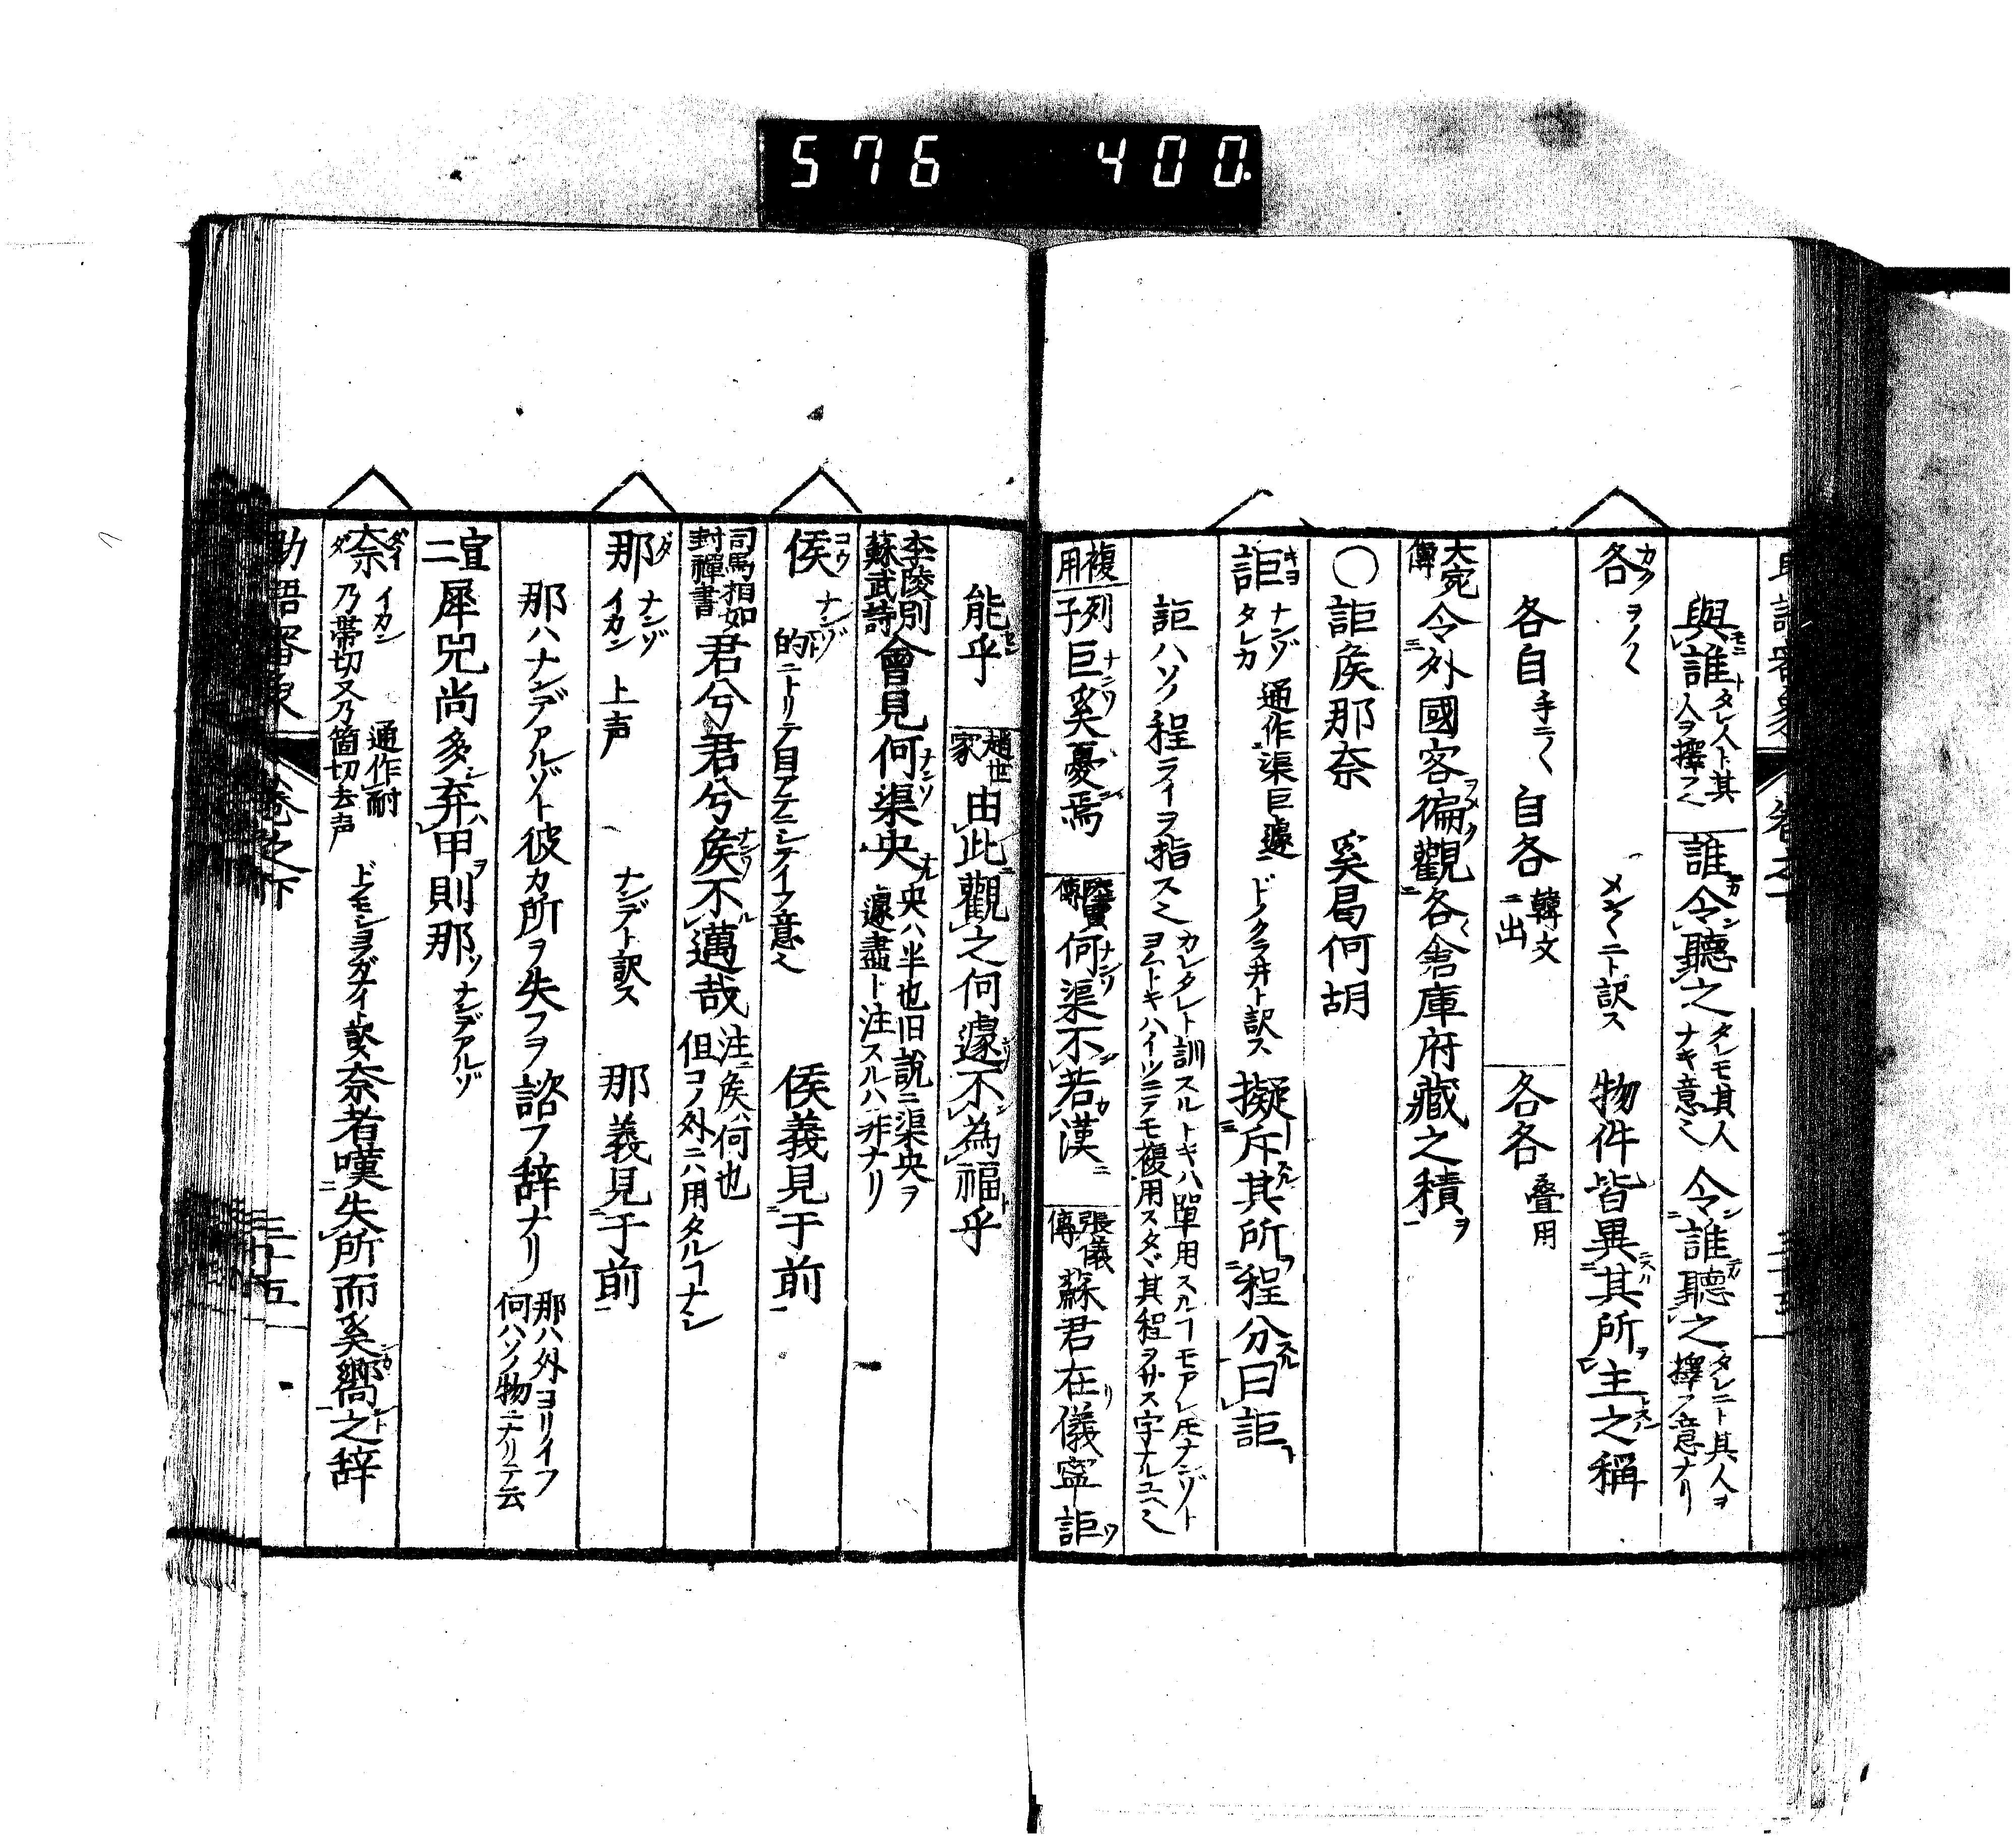 576 400.
與誰 タレ人ト其人ヲ擇フ也 誰令聽之 タレモ其人ナキ意也 令誰聽之 タレニト其人ヲ擇フ意ナリ
各 カク ヲノ〱 メン〱ニト訳ス 物件皆異其所主之稱
各自 手ニ〱 自各 韓文ニ出 各各 疊用
大宛傳 令外國客徧觀各倉庫府藏之積
〇詎矦那奈 奚曷何胡
詎 キヨ ナンゾ タレカ 通作渠巨遽 ドノクラ井ト訳ス 擬斥其所程分曰詎
詎ハソノ程ライヲ指ス也 カレタレト訓スルトキハ單用スルヿモアレ𪜈ナンゾトヨムトキハイツニテモ複用スタヾ其程ヲサス字ナルユヘ也
複用 列子 巨奚憂焉 陸賈傳 何渠不若漢 張儀傳 蘇君在儀寧詎
能乎 趙世家 由此觀之何遽不為福乎
李陵別蘇武詩 會見何渠央 央ハ半也旧説ニ渠央ヲ遽盡ト注スルハ非ナリ
矦 コウ ナンゾ 的ニトリテ目アテニシテイフ意也 矦義見于前
司馬相如封禪書 君兮君兮矦不邁哉 注矦ハ何也但コノ外ニハ用タルヿナシ
那 ダ ナンゾ イカン 上声 ナンデト訳ス 那義見于前
那ハナンデアルゾト彼カ所ヲ失フヲ諮フ辞ナリ 那ハ外ヨリイフ何ハソノ物ニナリテ云
宣二 犀兕尚多弃甲則那 ソナンデアルゾ
奈 ダイ ダ イカン 通作耐 乃帯切又乃箇切去声 ドフモシヨフガナイト訳ス 奈者嘆失所而奚嚮之辞
助語審象 巻之下 三十五